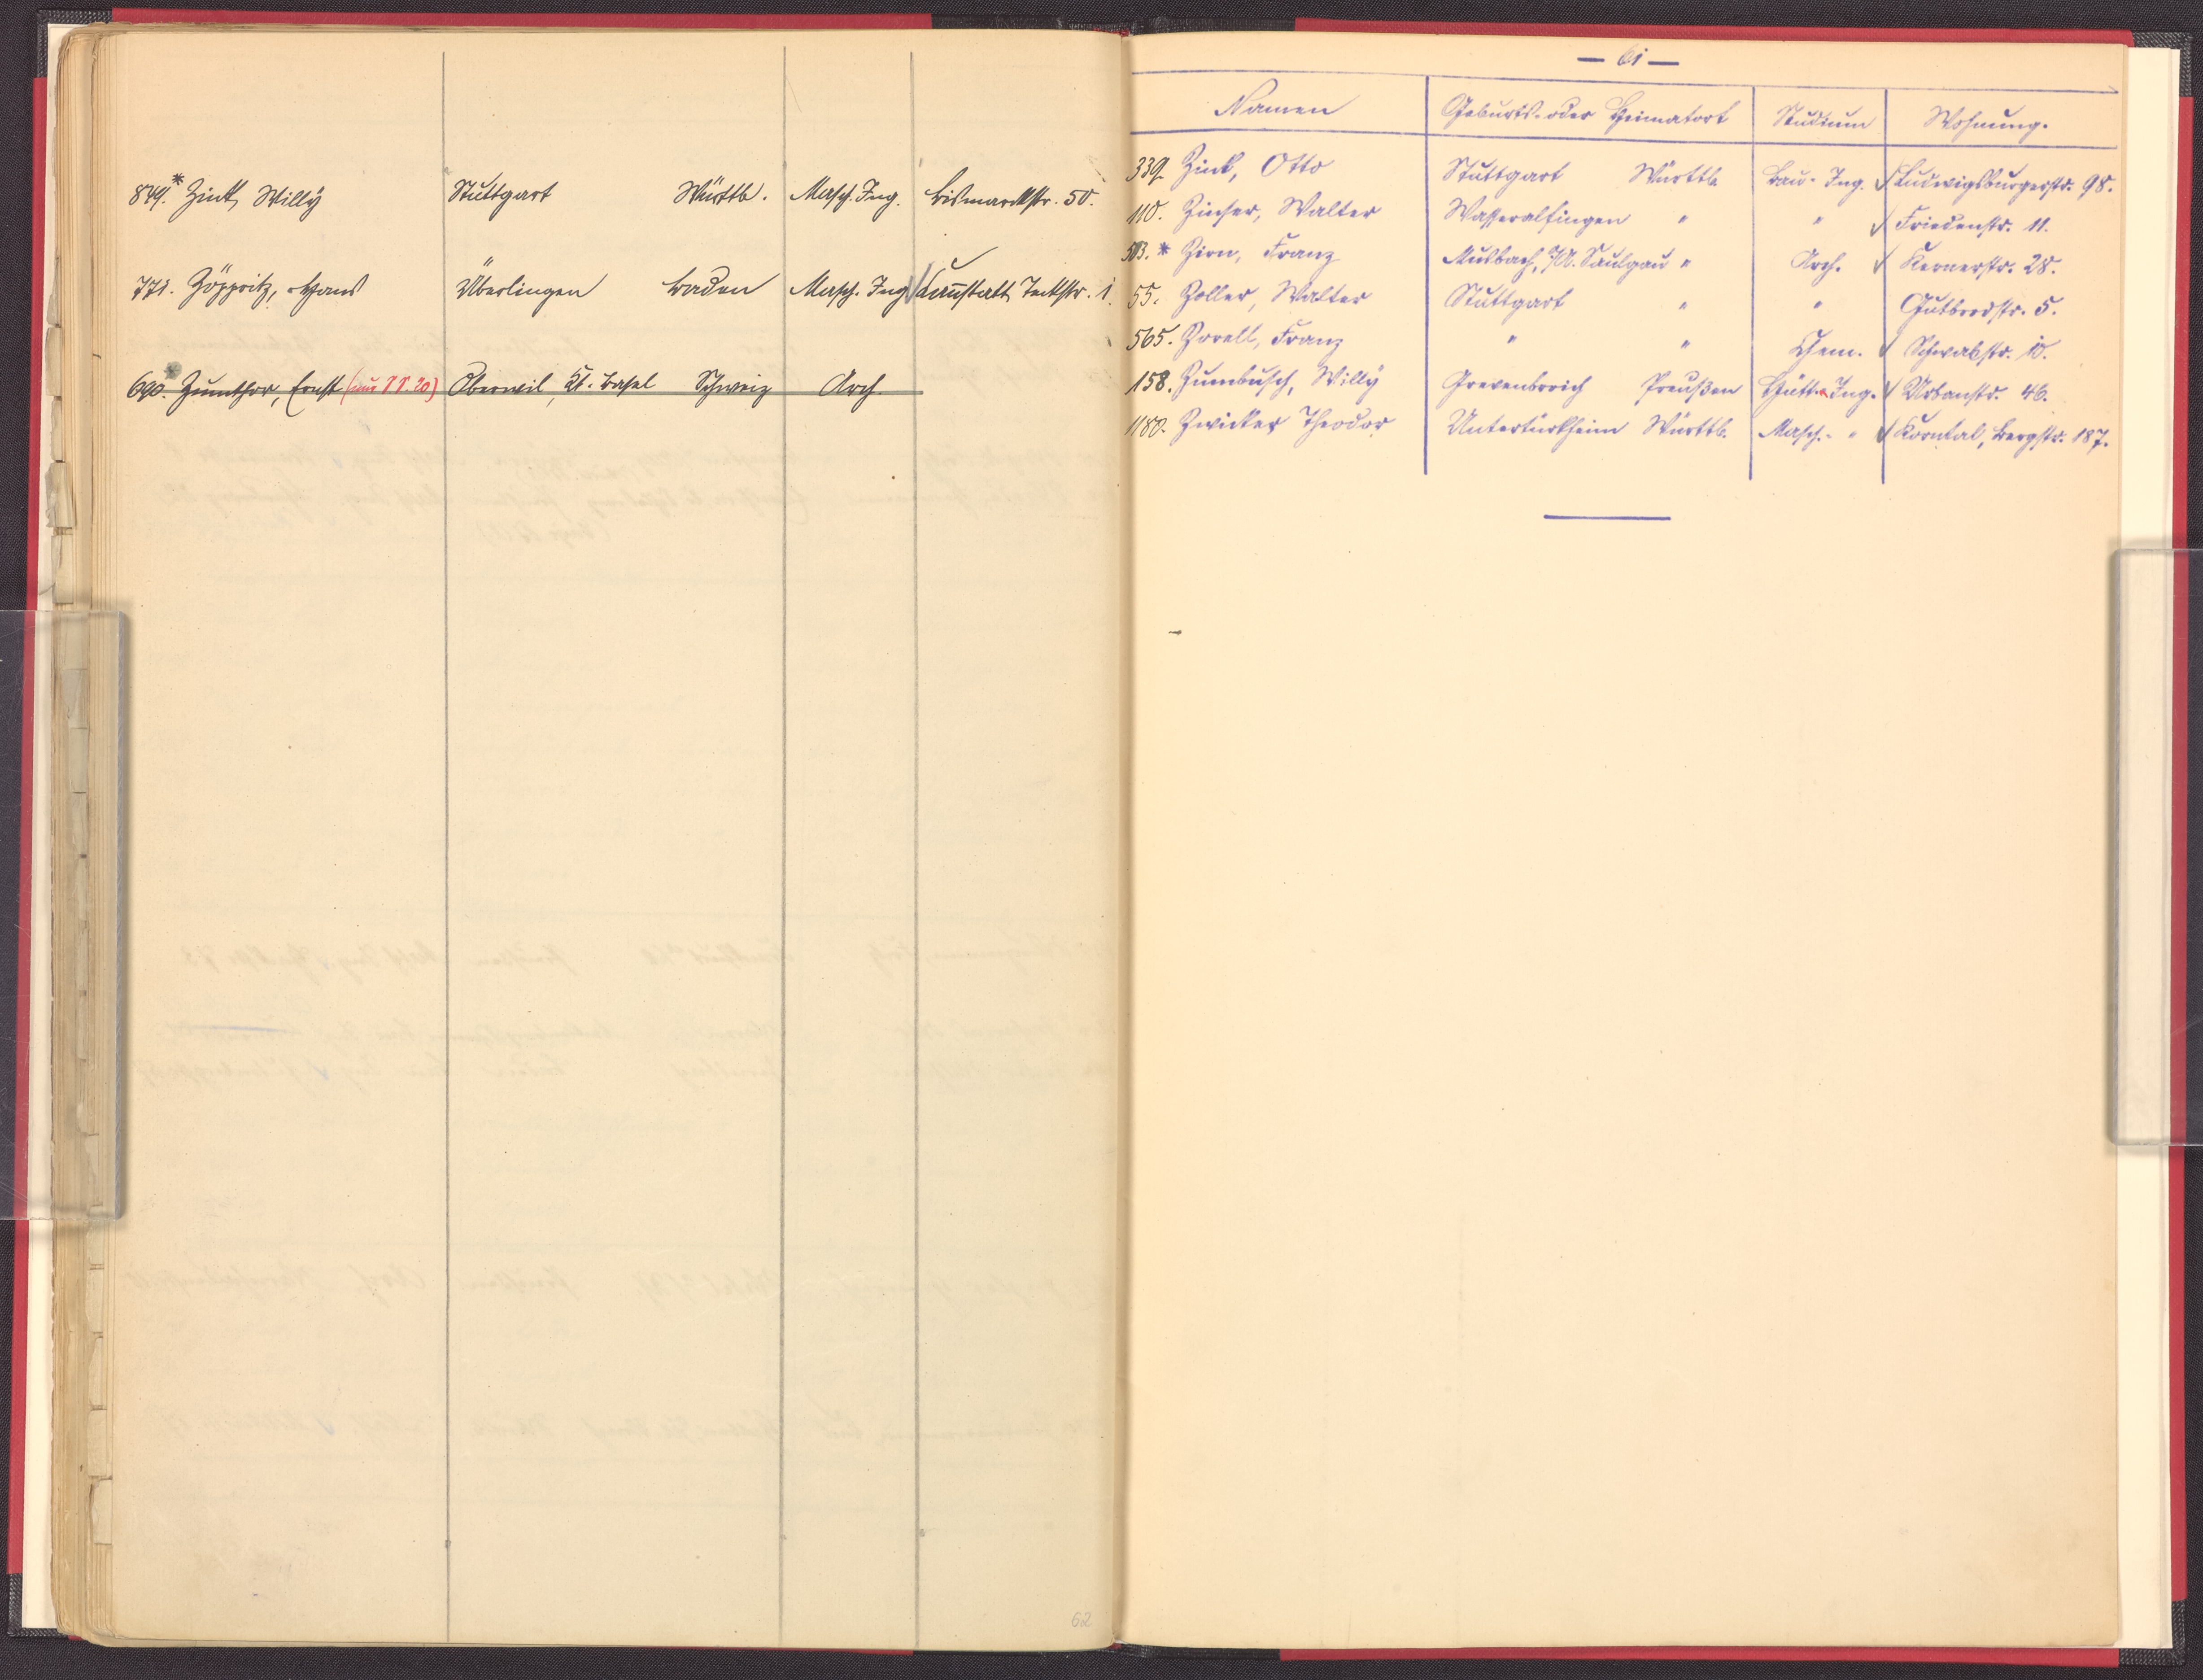 844.* Zink, Willy Stuttgart Württb. Masch. Ing. Bismarckstr. 50.
771. Zöppritz, Hans Überlingen Baden Masch. Ing. Cannstatt, Teckstr. 1.
690.* Zumthor, Ernst (nur SS. 20) Oberwil, Kt. Basel Schweiz Arch.
62
— 61 —
Namen Geburts- oder Heimatort Studium Wohnung.
339. Zink, Otto Stuttgart Württb. Bau-Ing. Ludwigsburgerstr. 98.
110. Zinser, Walter Wasseralfingen " " Friedenstr. 11.
503. * Zirn, Franz Musbach, O/A. Saulgau " Arch. Kernerstr. 28.
55. Zoller, Walter Stuttgart " " Gutbrodstr. 5.
565. Zorell, Franz " " Chem. Schwabstr. 10.
158. Zumbusch, Willy Grevenbroich Preußen Hütt.-Ing. Urbanstr. 46.
1180. Zwicker Theodor Untertürkheim Württb. Masch.- " Korntal, Bergstr. 187.